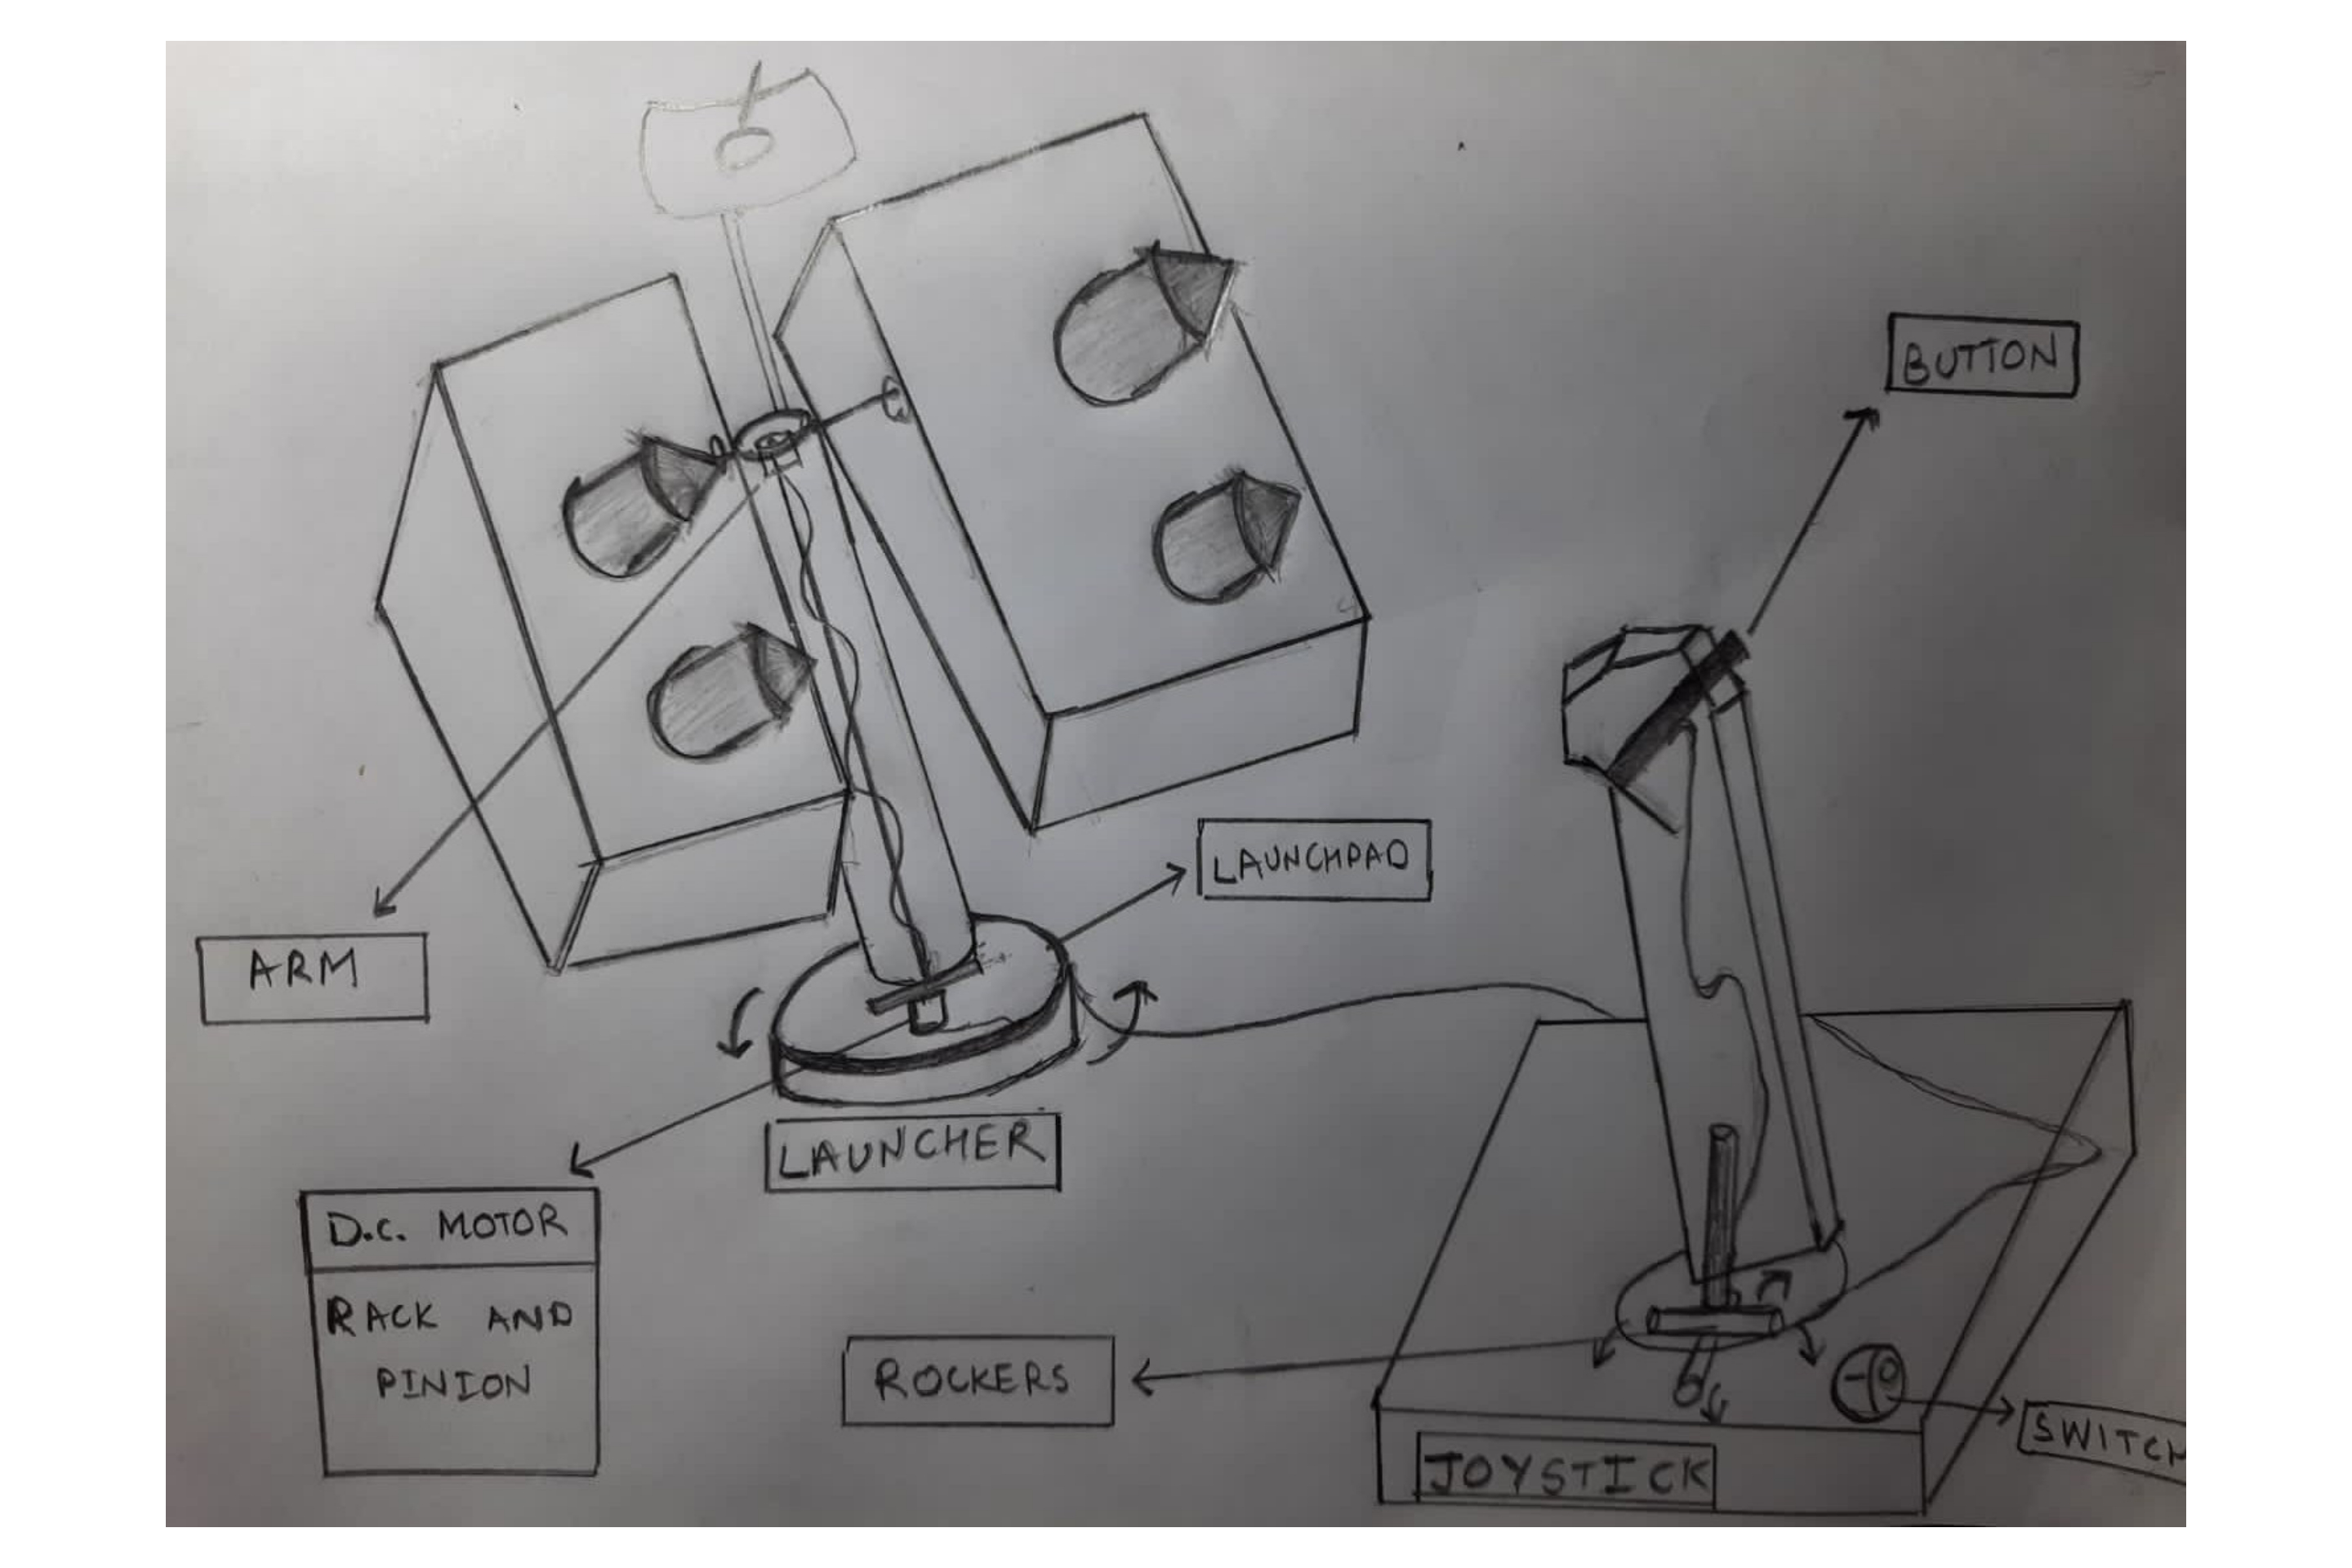 BUTTON
LAUNCHPAD
ARM
LAUNCHER
D.C. MOTOR
RACK AND
PINION
ROCKERS
SWITCH
JOYSTICK